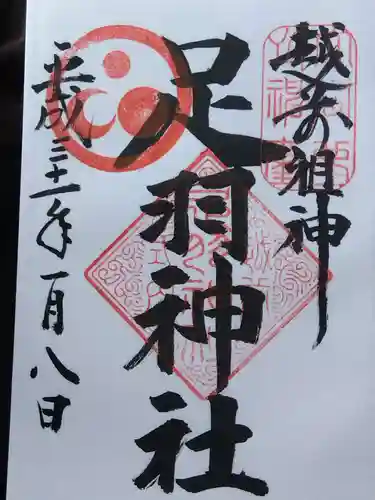 越前の祖神
足羽神社
平成三十一年一月八日